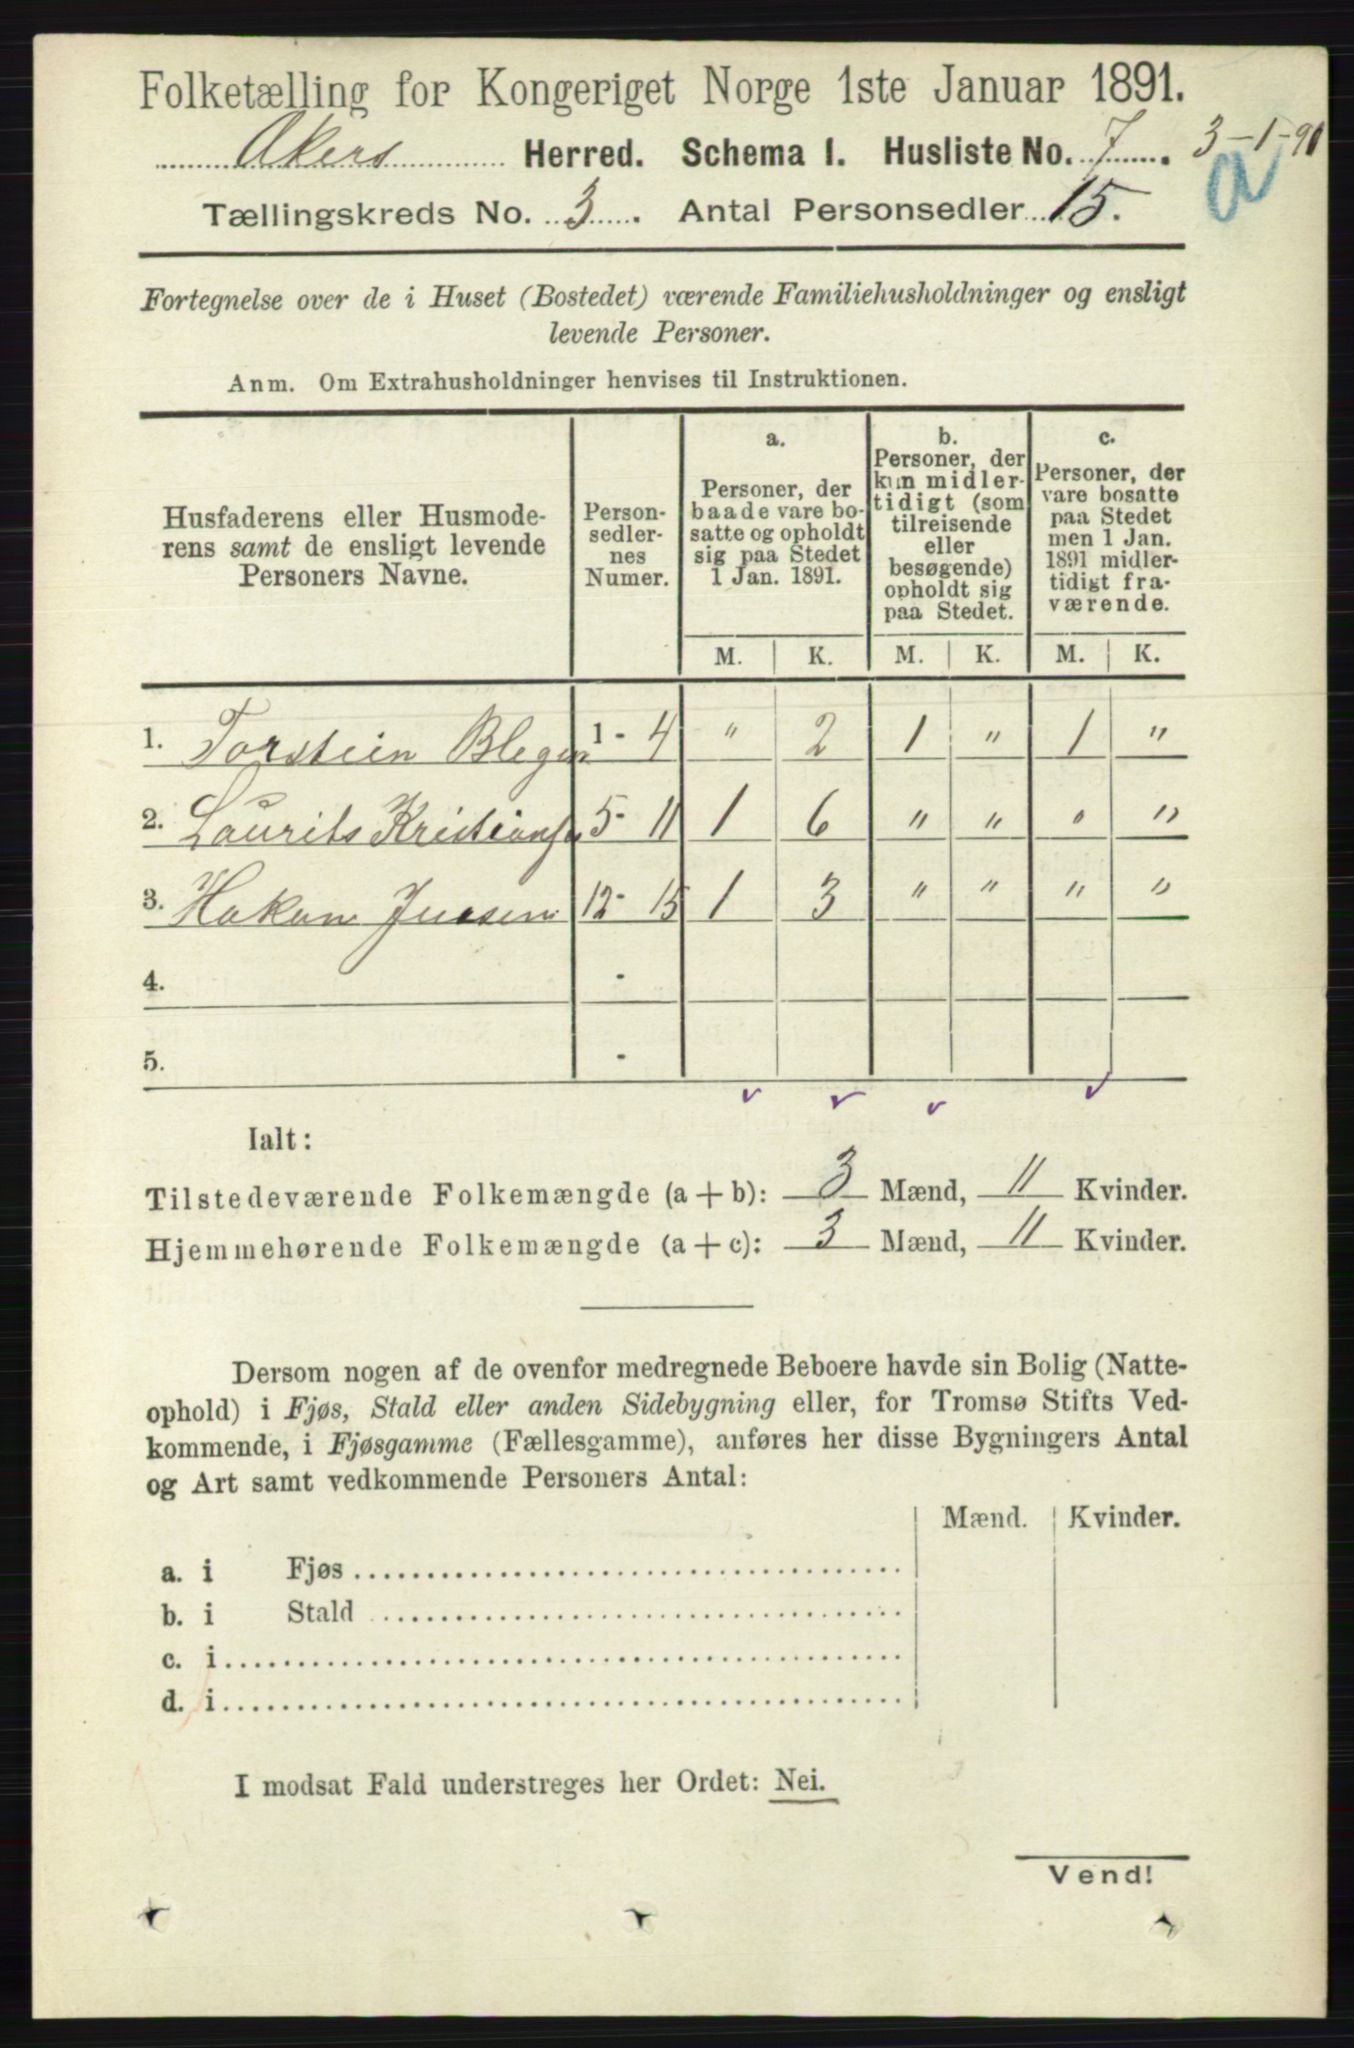 Folketælling for Kongeriget Norge 1ste Januar 1891.
Akers Herred. Schema I. Husliste No. 7. 3-1-91
a
Tællingskreds No. 3. Antal Personsedler 15.
Fortegnelse over de i Huset (Bostedet) værende Familiehusholdninger og ensligt
levende Personer.
Anm. Om Extrahusholdninger henvises til Instruktionen.
Husfaderens eller Husmode-
rens samt de ensligt levende
Personers Navne.
Person-
sedler-
nes
Numer.
a.
Personer, der
baade vare bo-
satte og opholdt
sig paa Stedet
1 Jan. 1891.
b.
Personer, der
kun midler-
tidigt (som
tilreisende
eller
besøgende)
opholdt sig
paa Stedet.
c.
Personer, der
vare bosatte
paa Stedet
men 1 Jan.
1891 midler-
tidigt fra-
værende.
M. K. M. K. M. K.
1. Torstein Blegen 1 - 4 " 2 1 " 1 "
2. Laurits Kristiansen 5 - 11 1 6 " " " "
3. Hakan 12 - 15 1 3 " " " "
4. -
5. -
Ialt:
Tilstedeværende Folkemængde (a + b): 3 Mænd, 11 Kvinder.
Hjemmehørende Folkemængde (a + c): 3 Mænd, 11 Kvinder.
Dersom nogen af de ovenfor medregnede Beboere havde sin Bolig (Natte-
ophold) i Fjøs, Stald eller anden Sidebygning eller, for Tromsø Stifts Ved-
kommende, i Fjøsgamme (Fællesgamme), anføres her disse Bygningers Antal
og Art samt vedkommende Personers Antal:
Mænd. Kvinder.
a. i Fjøs
b. i Stald
c. i
d. i
I modsat Fald understreges her Ordet: Nei.
Vend!